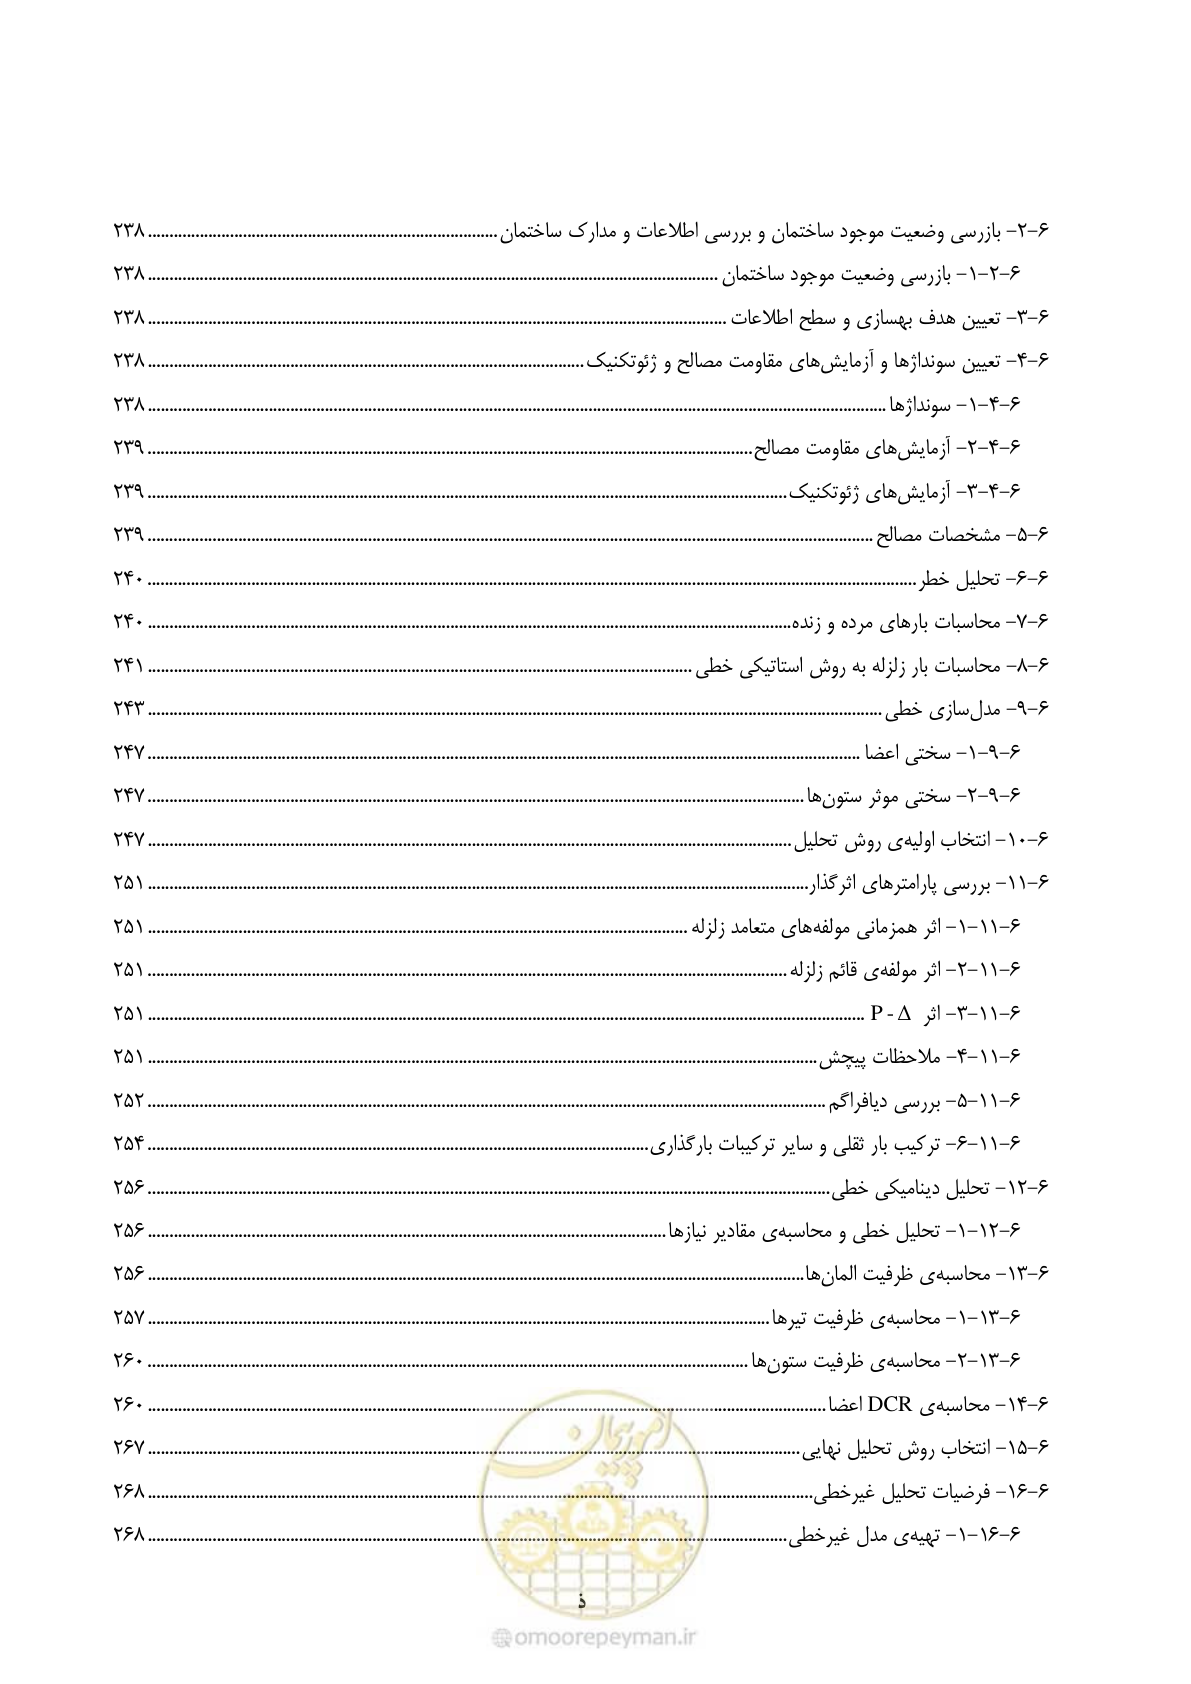 ۶-۲- بازرسی وضعیت موجود ساختمان و بررسی اطلاعات و مدارک ساختمان ........ ۲۳۸
۶-۲-۱- بازرسی وضعیت موجود ساختمان ........ ۲۳۸
۶-۳- تعیین هدف بهسازی و سطح اطلاعات ........ ۲۳۸
۶-۴- تعیین سونداژها و آزمایش‌های مقاومت مصالح و ژئوتکنیک ........ ۲۳۸
۶-۴-۱- سونداژها ........ ۲۳۸
۶-۴-۲- آزمایش‌های مقاومت مصالح ........ ۲۳۹
۶-۴-۳- آزمایش‌های ژئوتکنیک ........ ۲۳۹
۶-۵- مشخصات مصالح ........ ۲۳۹
۶-۶- تحلیل خطر ........ ۲۴۰
۶-۷- محاسبات بارهای مرده و زنده ........ ۲۴۰
۶-۸- محاسبات بار زلزله به روش استاتیکی خطی ........ ۲۴۱
۶-۹- مدل‌سازی خطی ........ ۲۴۳
۶-۹-۱- سختی اعضا ........ ۲۴۷
۶-۹-۲- سختی موثر ستون‌ها ........ ۲۴۷
۶-۱۰- انتخاب اولیه‌ی روش تحلیل ........ ۲۴۷
۶-۱۱- بررسی پارامترهای اثرگذار ........ ۲۵۱
۶-۱۱-۱- اثر همزمانی مولفه‌های متعامد زلزله ........ ۲۵۱
۶-۱۱-۲- اثر مولفه‌ی قائم زلزله ........ ۲۵۱
۶-۱۱-۳- اثر P - Δ ........ ۲۵۱
۶-۱۱-۴- ملاحظات پیچش ........ ۲۵۱
۶-۱۱-۵- بررسی دیافراگم ........ ۲۵۲
۶-۱۱-۶- ترکیب بار ثقلی و سایر ترکیبات بارگذاری ........ ۲۵۴
۶-۱۲- تحلیل دینامیکی خطی ........ ۲۵۶
۶-۱۲-۱- تحلیل خطی و محاسبه‌ی مقادیر نیازها ........ ۲۵۶
۶-۱۳- محاسبه‌ی ظرفیت المان‌ها ........ ۲۵۶
۶-۱۳-۱- محاسبه‌ی ظرفیت تیرها ........ ۲۵۷
۶-۱۳-۲- محاسبه‌ی ظرفیت ستون‌ها ........ ۲۶۰
۶-۱۴- محاسبه‌ی DCR اعضا ........ ۲۶۰
۶-۱۵- انتخاب روش تحلیل نهایی ........ ۲۶۷
۶-۱۶- فرضیات تحلیل غیرخطی ........ ۲۶۸
۶-۱۶-۱- تهیه‌ی مدل غیرخطی ........ ۲۶۸
امور پیمان
ذ
@omoorepeyman.ir